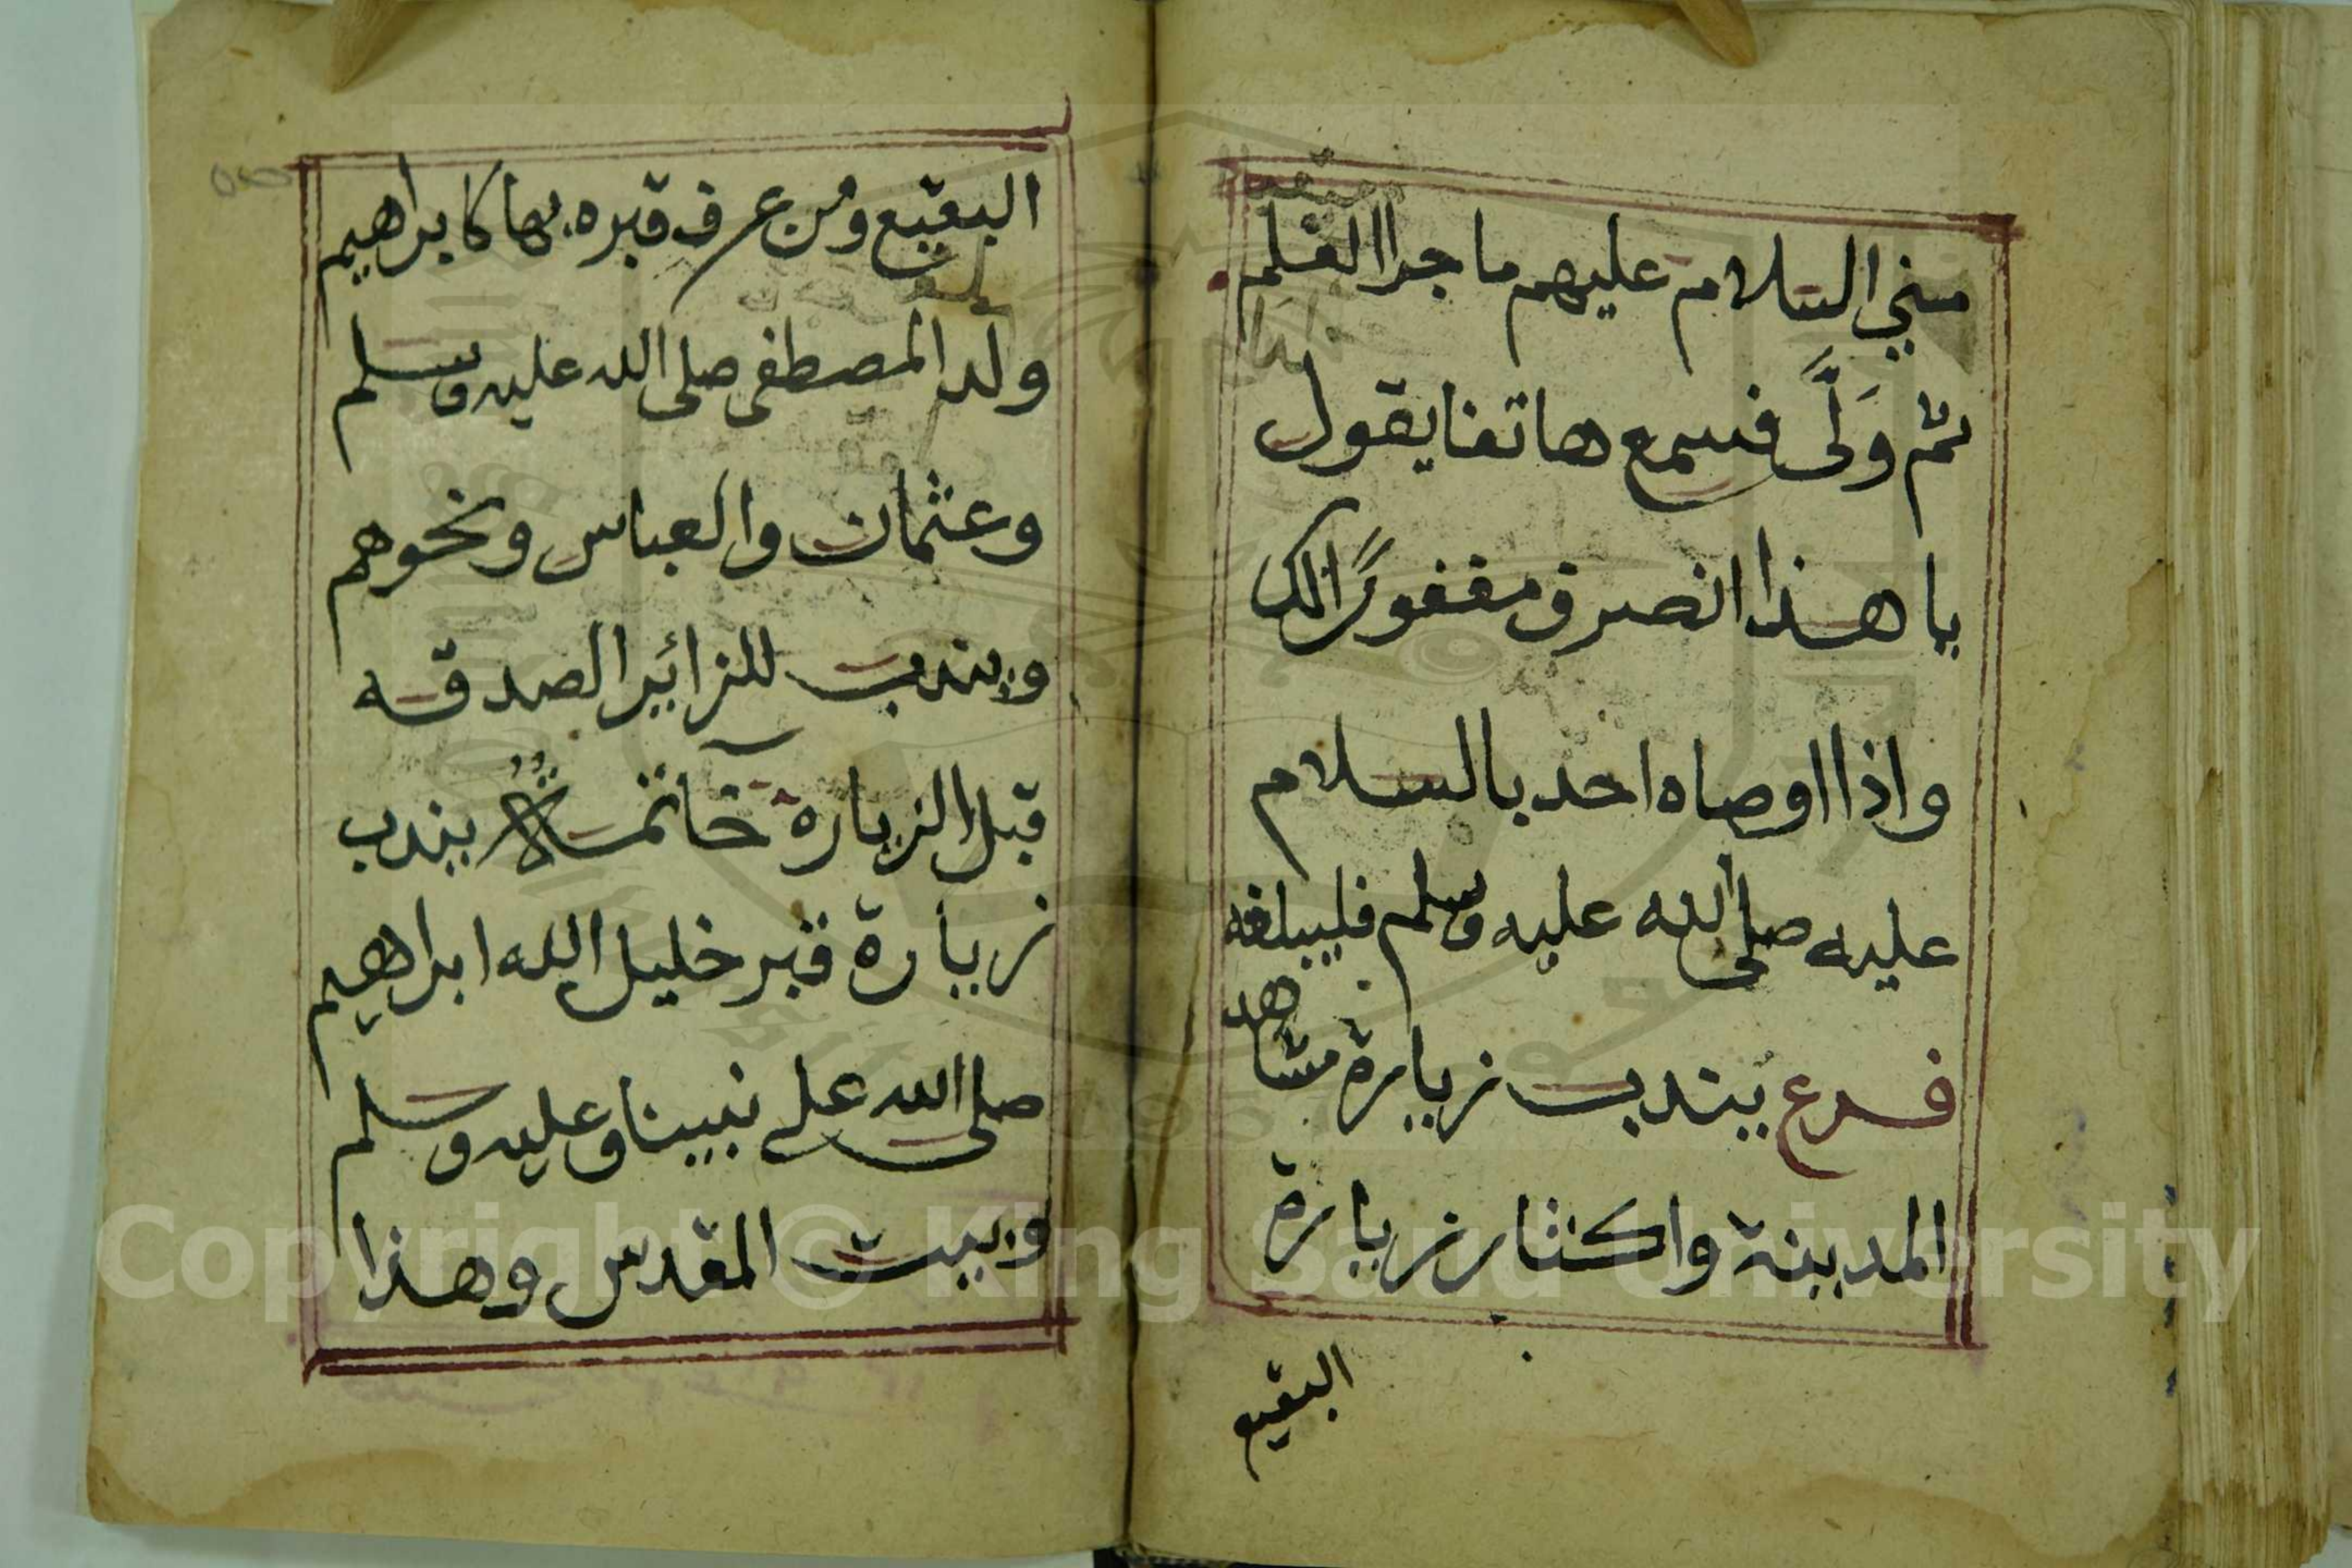 مني السلام عليهم ما جرا القلم
ثم وَلَّى فسمع هاتفا يقول
يا هذا انصرف مغفورًا لك
واذا اوصاه احد بالسلام
عليه صلى الله عليه وسلم فليبلغه
فرع يندب زيارة مشاهد
المدينة واكثار زيارة
البقيع
البقيع ومن عرف قبره بها كابراهيم
ولد المصطفى صلى الله عليه وسلم
وعثمان والعباس ونحوهم
ويندب للزائر الصدقه
قبل الزيارة خاتمة يندب
زيارة قبر خليل الله ابراهيم
صلى الله على نبينا وعليه وسلم
وبيت المقدس وهذا
Copyright © King Saud University
1957